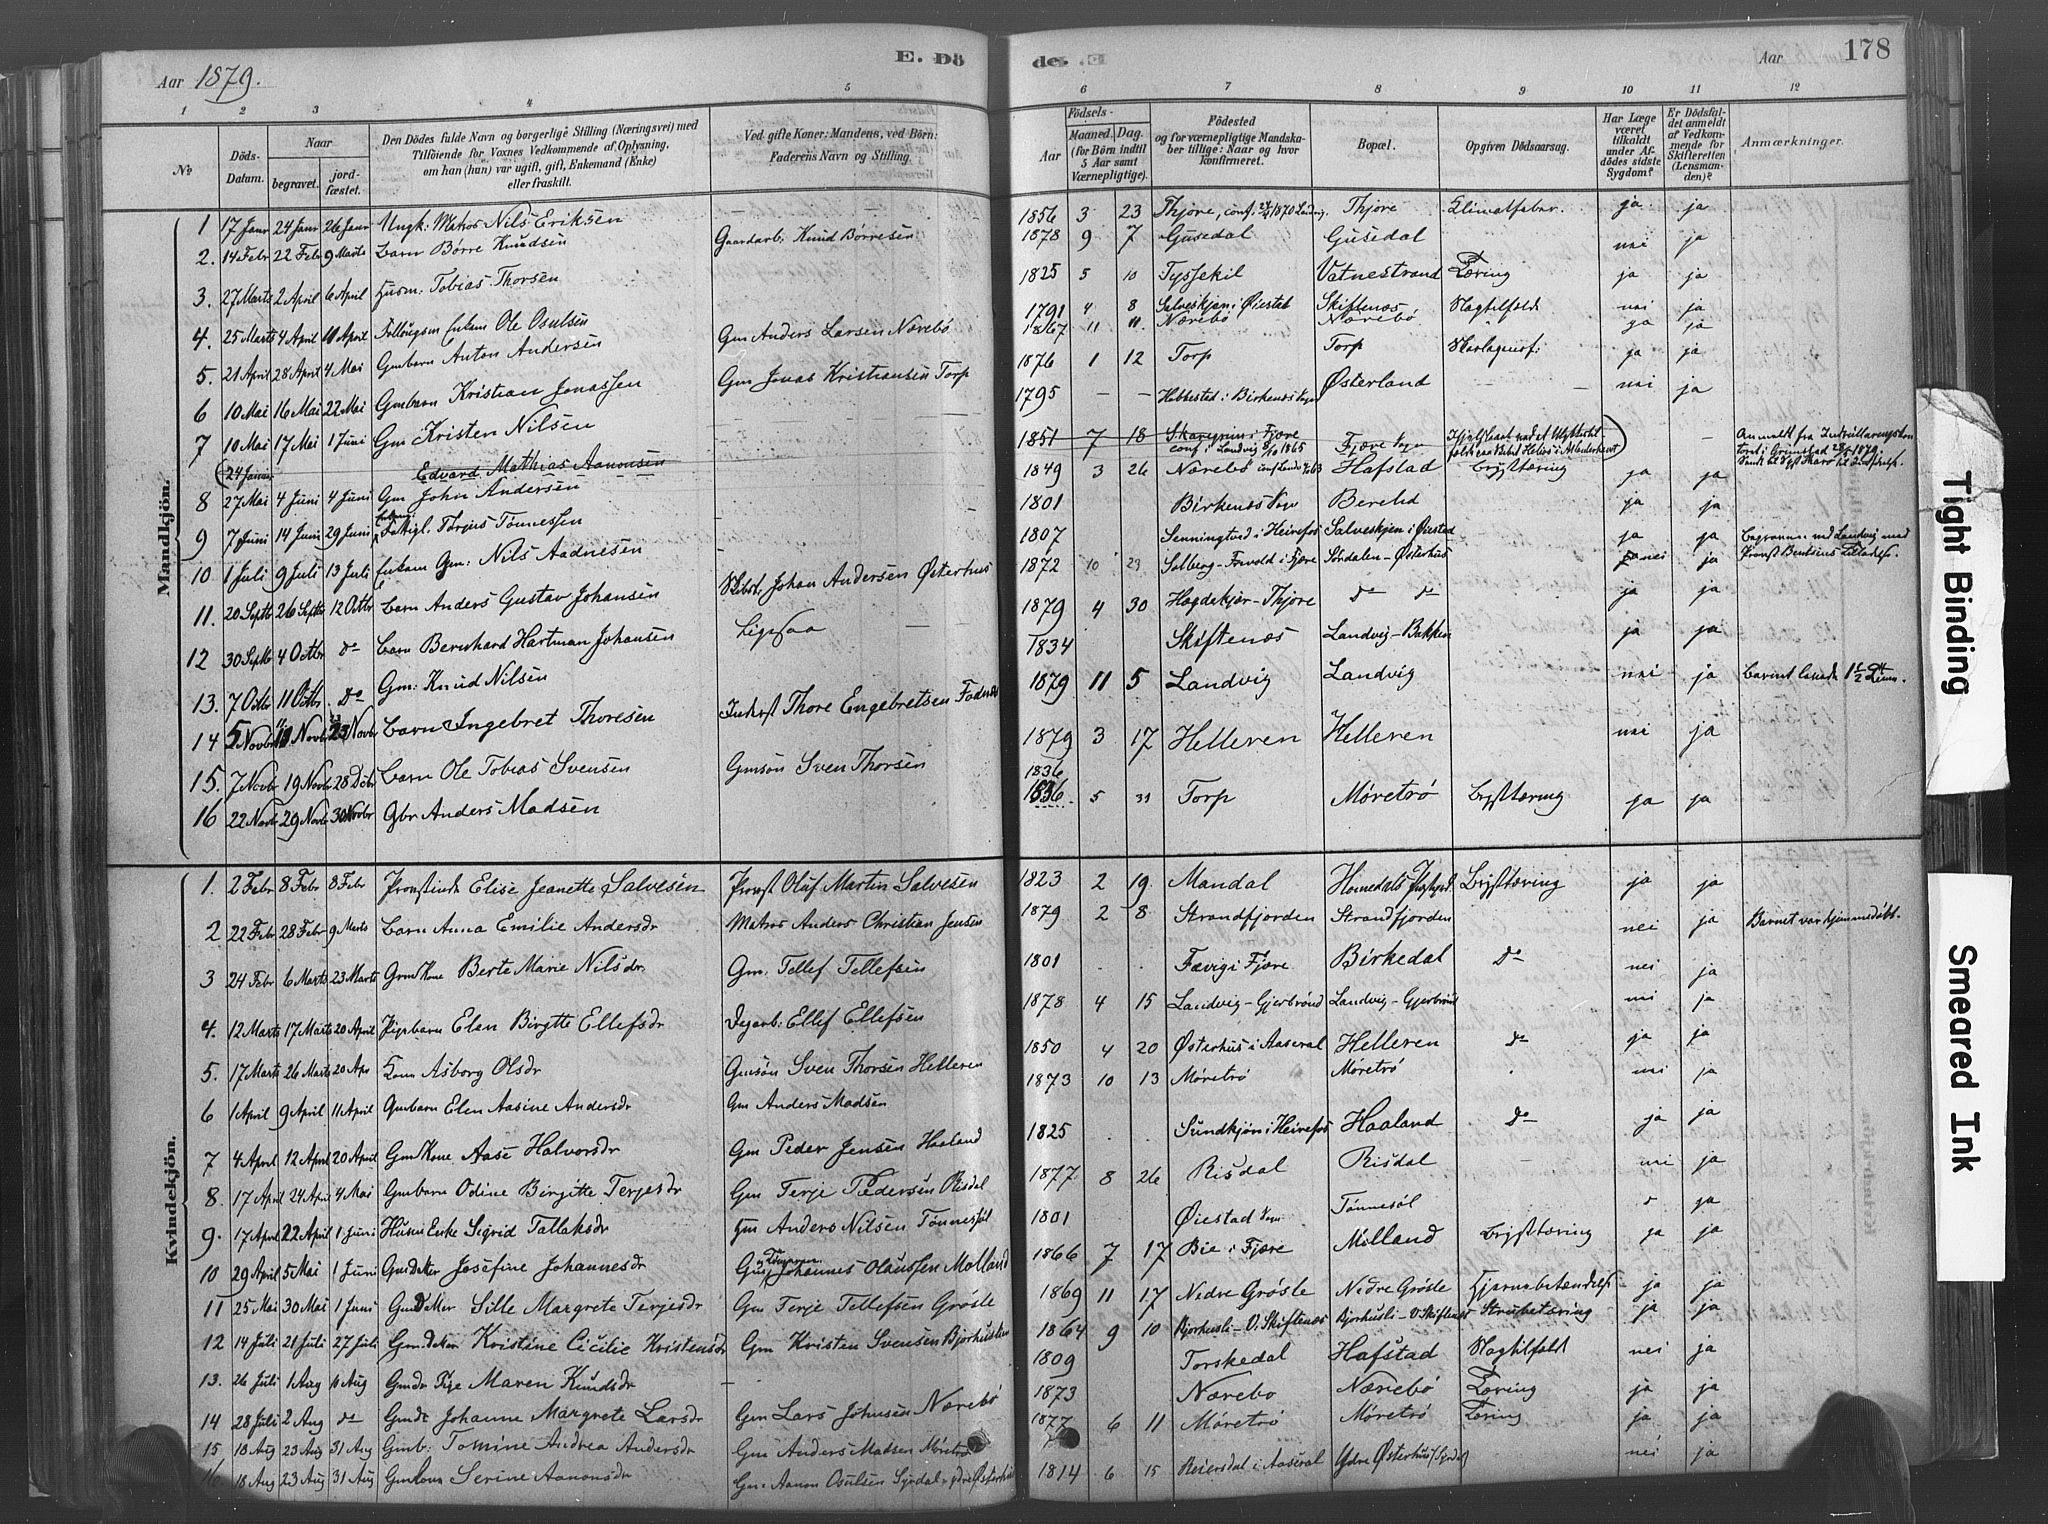 Aar 1879.
E. Dö
de. E
Aar
178
1 2 3 4 5 6 7 8 9 10 11 12
№
Döds-Datum.
Naar
begravet.
jord-fæstet.
Den Dödes fulde Navn og borgerlige Stilling (Næringsvei) med Tilföiende for Voxnes Vedkommende af Oplysning, om han (hun) var ugift, gift, Enkemand (Enke) eller fraskilt.
Ved gifte Koner: Mandens, ved Börn: Faderens Navn og Stilling.
Födsels-
Aar
Maaned. Dag.
(for Börn indtil 5 Aar samt Værnepligtige).
Födested
og for værnepligtige Mandskaber tillige: Naar og hvor konfirmeret.
Bopæl.
Opgiven Dödsaarsag.
Har Læge været tilkaldt under Afdödes sidste Sygdom?
Er Dödsfaldet anmeldt af Vedkommende for Skifteretten (Lensmanden)?
Anmærkninger.
Mandkjön.
1 17 Janr 24 Janr 26 Janr Ungk: Matros Nils Eriksen — 1856 3 23 Thjore, conf. 1870 Landvig Thjore Klimatfeber ja ja
2. 14 Febr 22 Febr 9 Marts Barn Börre Knudsen Gaardarb: Knud Börresen 1878 9 7 Gusedal Gusedal nei ja
3. 27 Marts 2 April 6 April Husm: Tobias Thorsen 1825 5 10 Tyssekil Vatnestrand Tæring ja ja
4. 25 Marts 4 April 11 April Enkem Ole Osulsen 1791 4 8 Salveskjen i Øiestad Skiftenæs Slagtilfælde nei ja
5. 21 April 28 April 4 Mai Gmbarn Anton Andersen Gm Anders Larsen Nærebö 1867 11 11. Nærebö Nærebö ja ja
6 10 Mai 16 Mai 22 Mai Gmbarn Kristian Jonassen Gm Jonas Kristiansen Torp 1876 1 12 Torp Torp ja ja
7 10 Mai 17 Mai 1 Juni Gm Kristen Nilsen 1795 — — i Birkenes Sogn Østerland nei ja
(24 Juni Edvard Mathias Aanonsen 1851 7 18 i Fjære conf. i Landvig 8/10 1865 Fjære Sogn
8 27 Mai 4 Juni 4 Juni Gm John Andersen 1849 3 26 Nærebö Hafstad Brysttæring ja ja
9 7 Juni 14 Juni 29 Juni Terjus Tönnessen 1801 Birkenes Sogn ja ja
10 1 Juli 9 Juli 13 Juli Enkem Gm: Nils Aadnesen 1807 i Heirefos Salveskjen i Øiestad ja ja
11. 20 Septbr 26 Septbr 12 Octbr Barn Anders Gustav Johansen Johan Andersen Østerhus 1872 10 29 i Fjære Østerhus nei ja
12 30 Septbr 4 Octbr do Barn Bernhard Hartman Johansen 1879 4 30 Thjore do do ja ja
13. 7 Octbr 11 Octbr Do Gm: Knud Nilsen 1834 Skiftenæs Landvig–Bakken ja ja
14 5 Novbr 11 Novbr 23 Novbr Barn Ingebret Thoresen Inderst Thore Engebretsen 1879 11 5 Landvig Landvig nei ja
15. 7 Novbr 19 Novbr 28 Dcbr Barn Ole Tobias Svensen Gmsön Sven Thorsen 1879 3 17 Helleren Helleren nei ja
16 22 Novbr 29 Novbr 30 Novbr Gbr Anders Madsen 1836 1836 5 31 Torp Möretrö Brysttæring ja ja
Kvindekjön.
1. 2 Febr 8 Febr 8 Febr Provstinde Elise Jeanette Salvesen Provst Oluf Martin Salvesen 1823 2 19. Mandal Brysttæring ja ja
2 22 Febr 28 Febr 9 Marts Barn Anna Emilie Andersdr Matros Anders Christian Jensen 1879 2 8 Strandfjorden Strandfjorden nei ja Barnet var hjemmedöbt.
3 24 Febr 6 Marts 23 Marts Gmkone Berte Marie Nilsdr. Gm: Tellef Tellefsen 1801 . . i Fjære Birkedal Do nei ja
4. 12 Marts 17 Marts 20 April Pigebarn Elen Birgitte Ellefsdr Dagarb: Ellef Ellefsen 1878 4 15 Landvig–Gjerbrönd Landvig–Gjerbrönd nei ja
5. 17 Marts 26 Marts 20 Apr Kone Asborg Olsdr Gmsön Sven Thorsen Helleren 1850 4 20 Østerhus i Aaseral Helleren do ja ja
6 1 April 9 April 11 April Gmbarn Elen Aasine Andersdr Gm Anders Madsen 1873 10 13 Möretrö Möretrö nei ja
7 4 April 12 April 20 April Gm Kone Aase Halvorsdr Gm Peder Jensen Haaland 1825 . . i Heirefos Haaland Do ja ja
8. 17 April 24 April 4 Mai Gmbarn Odine Birgitte Terjesdr Gm Terje Pedersen Risdal 1877 8 26 Risdal Risdal nei ja
9. 17 April 22 April 1 Juni Husm Enke Sigrid Tallaksdr Hm Anders Nilsen Tönnesöl 1801 Øiestad Sogn Tönnesöl ja
10 29 April 5 Mai 1 Juni Gm Datter Josefine Johannesdr Johannes Olaussen Molland 1866 7 17 Bie i Fjære Molland Brysttæring ja ja
11 25 Mai 30 Mai 1 Juni Gm Datter Sille Margrete Terjesdr Gm Terje Tellefsen Gröste 1869 11 17 Nedre Gröste Nedre Gröste Hjernebetændelse ja ja
12 14 Juli 21 Juli 27 Juli Gm: Datter Kristine Cicilie Kristensdr Gm Kristen Svensen Bjorhusli 1864 9 10 Bjorhusli–V. Skiftenæs Bjorhusli–V. Skiftenæs Strubetæring ja ja
13. 26 Juli 1 Aug 10 Aug Maren Knudsdr — 1809 Torskedal Hafstad Slagtilfæld nei ja
14 28 Juli 2 Aug do Johanne Margrete Larsdr Gm Lars Johnsen Nærebö 1873 Nærebo Nærebö Tæring ja ja
15 18 Aug 23 Aug 31 Aug Gmb: Tomine Andrea Andersdr Gm Anders Madsen Möretrö 1877 6 11 Möretrö Möretrö Tæring ja ja
16. 18 Aug 23 Aug 31 Aug Gmkone Serine Aanonsdr Gm: Aanon Osulsen 1814 6 15 Reiersdal i Aaseral Ydre Østerhus nei ja
Tight Binding
Smeared Ink